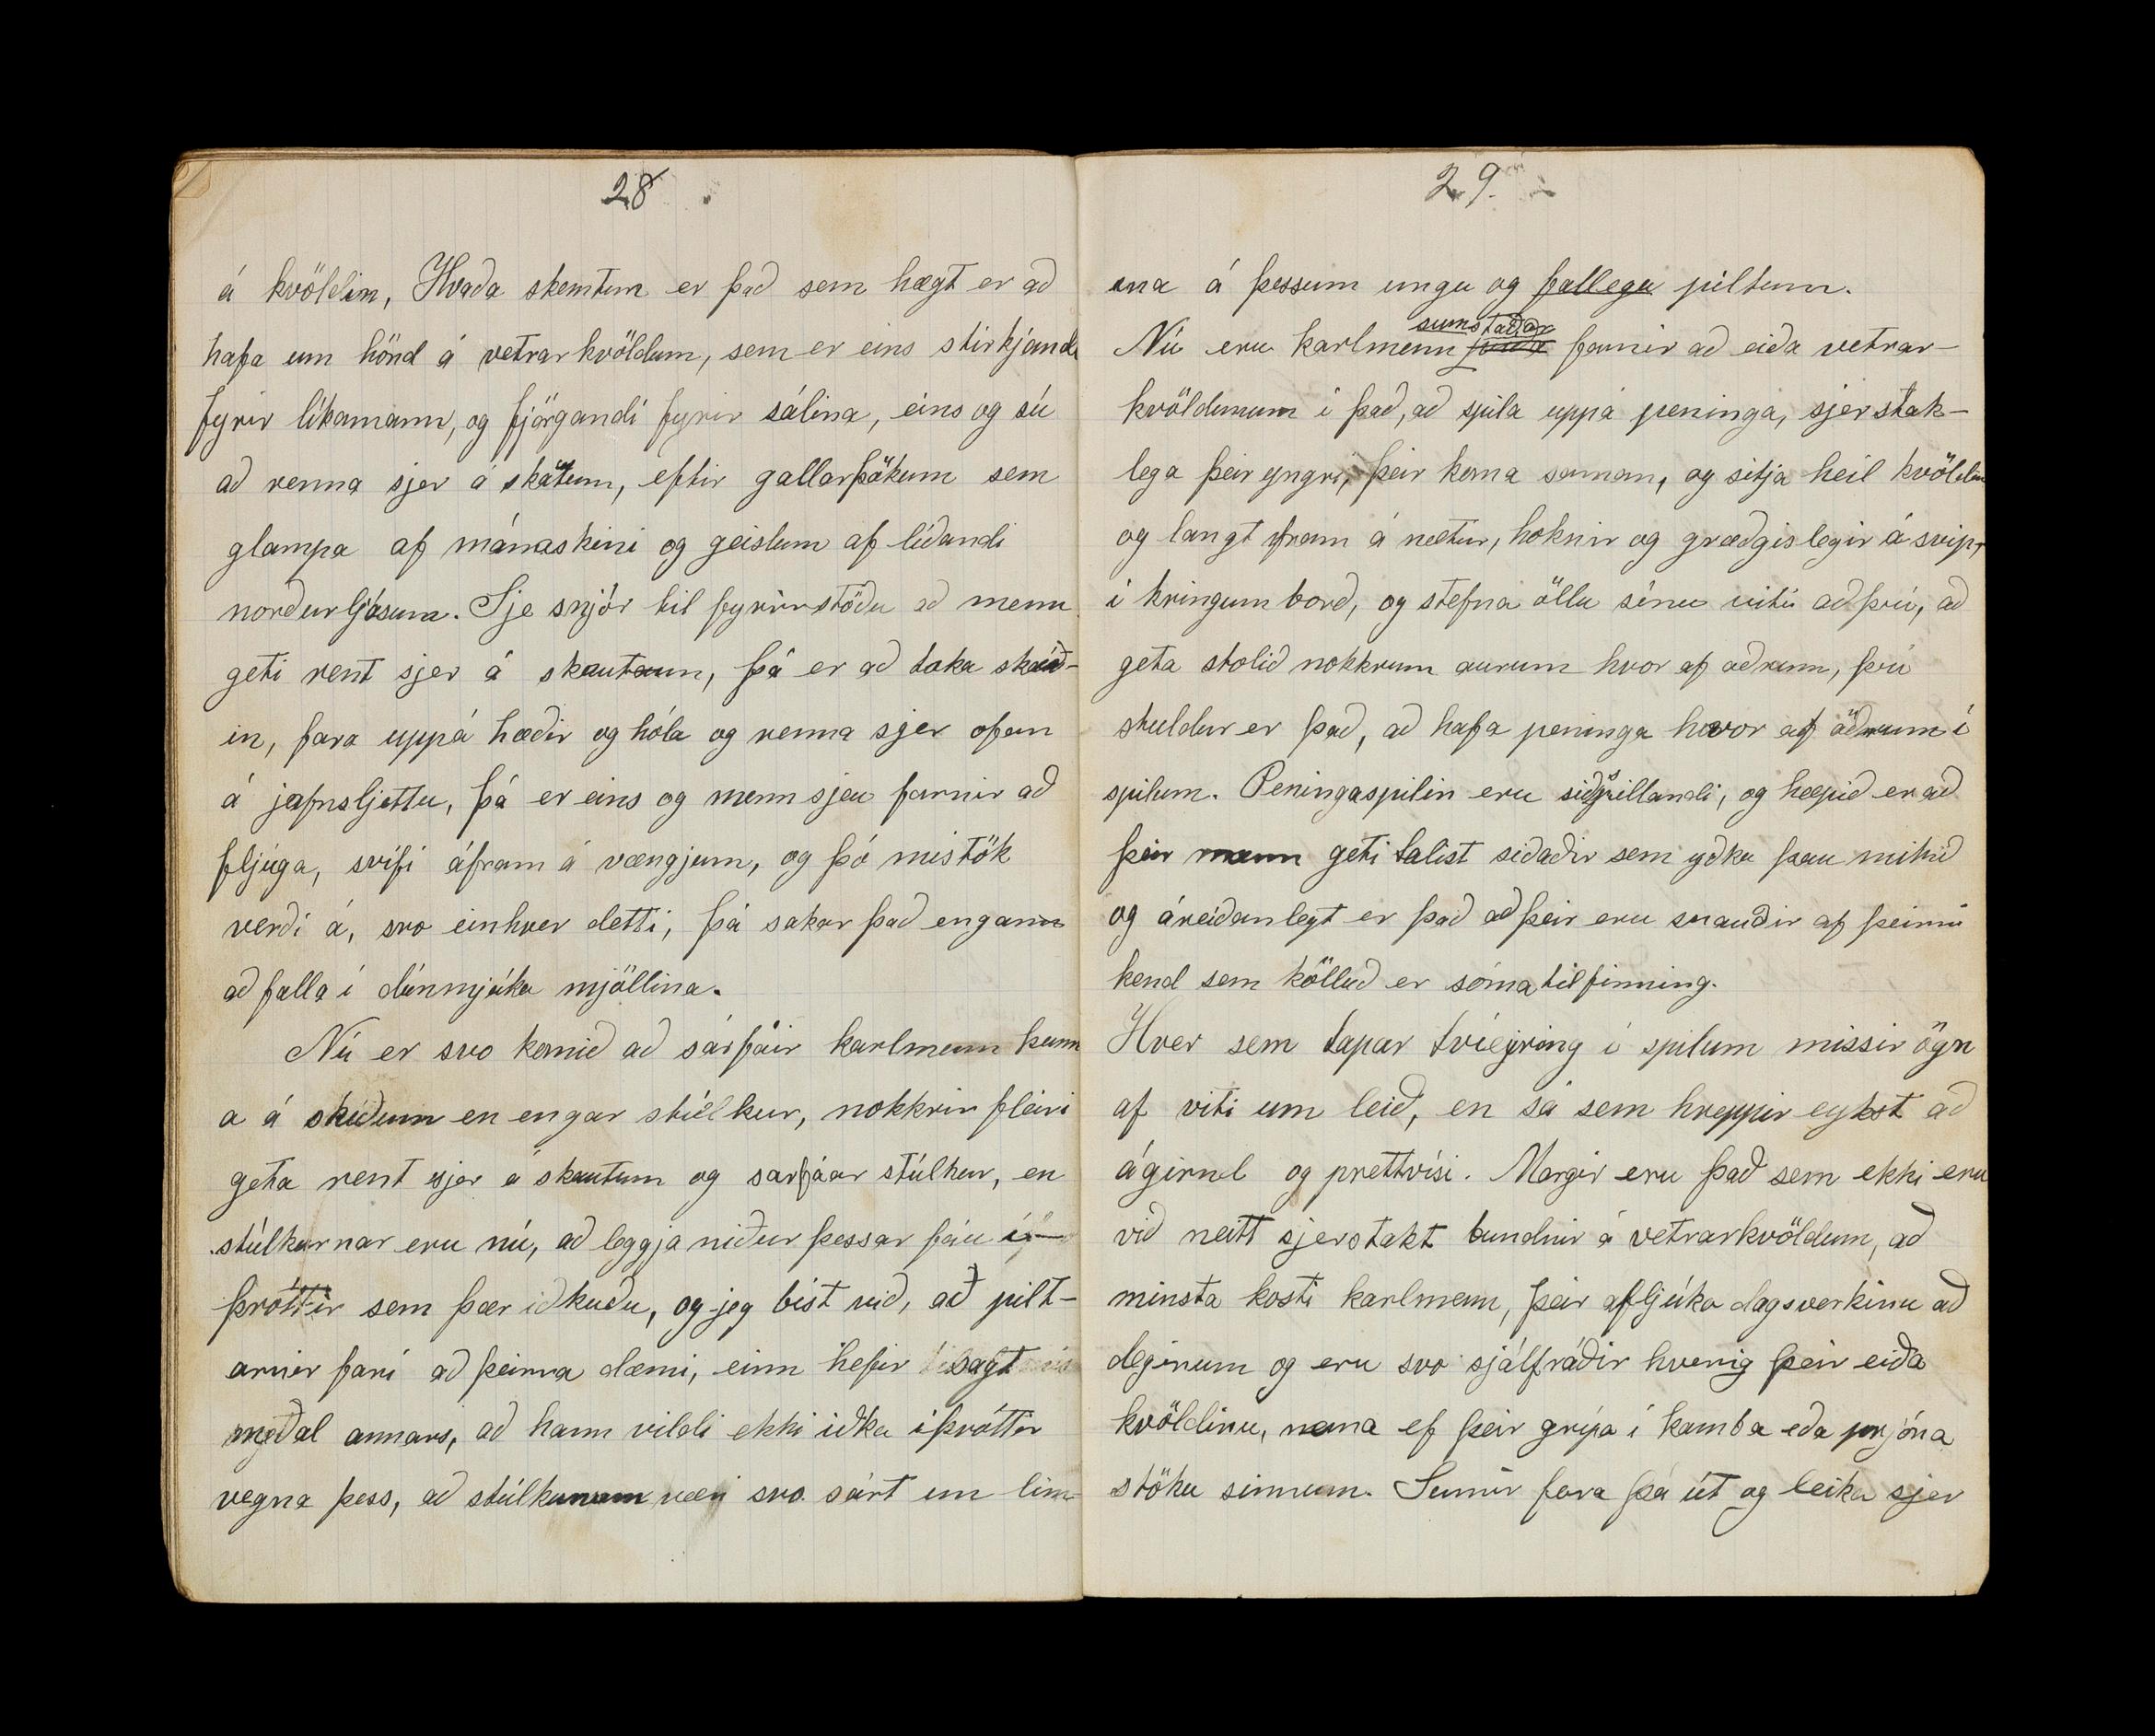 28
á kvöldin, Hvaða skemtun er það sem hægt er að
hafa um hönd á vetrarkvöldum, sem er eins stirkjandi
fyrir líkamann, og fjörgandi fyrir sálina, eins og sú
að renna sjer á skautum, eftir gallarþökum sem
glampa af mánaskini og geislum af líðandi
norðurljósum. Sje snjór til fyrirstöðu að menn
geti rent sjer á skautum, þá er að taka skíð-
in, fara uppá hæðir og hóla og renna sjer ofan
á jafnsljettu, þá er eins og menn sjeu farnir að
fljúga, svífi áfram á vængjum, og þó mistök
verði á, svo einhver detti, þá sakar það engann
að falla í dúnmjúka mjöllina.
Nú er svo komið að sárfáir karlmenn kunn
a á skíðum en engar stúlkur, nokkrir fleiri
geta rent sjer á skautum og sarfáar stúlkur, en
stúlkurnar eru nú, að leggja niður þessar fáu í-
þróttir sem þær iðkuðu, og jeg bíst við, að pilt-
arnir fari að þeirra dæmi, einn hefir sagt
meðal annars, að hann vildi ekki iðka iþróttir
vegna þess, að stúlkunum væri svo sárt um lim-
29.
ina á þessum ungu og fallegu piltum.
sumstaðar
Nú eru karlmenn farnir að eiða vetrar-
kvöldunum í það, að spila uppá peninga, sjerstak-
lega þeir yngri, þeir koma saman, og sitja heil kvöldin
og langt fram á nætur, hoknir og græðgislegir á svip,
í kringum borð, og stefna öllu sínu viti að því, að
geta stolið nokkrum aurum hvor af aðrum, því
stuldur er það, að hafa peninga hvor af öðrum í
spilum. Peningaspilin eru siðspillandi, og hæpið er að
þeir menn geti talist siðaðir sem yðka þau mikið
og áreiðanlegt er það að þeir eru snauðir af þeirri
kend sem kölluð er sómatilfinning.
Hver sem tapar tvíeyring í spilum missir ögn
af viti um leið, en sá sem hreppir eykst að
ágirnd og prettvísi. Margir eru það sem ekki eru
við neitt sjerstakt bundnir á vetrarkvöldum, að
minsta kosti karlmenn, þeir afljúka dagsverkinu að
deginum og eru svo sjálfráðir hvernig þeir eiða
kvöldinu, nema ef þeir grípa í kamba eða prjóna
stöku sinnum. Sumir fara þá út og leika sjer